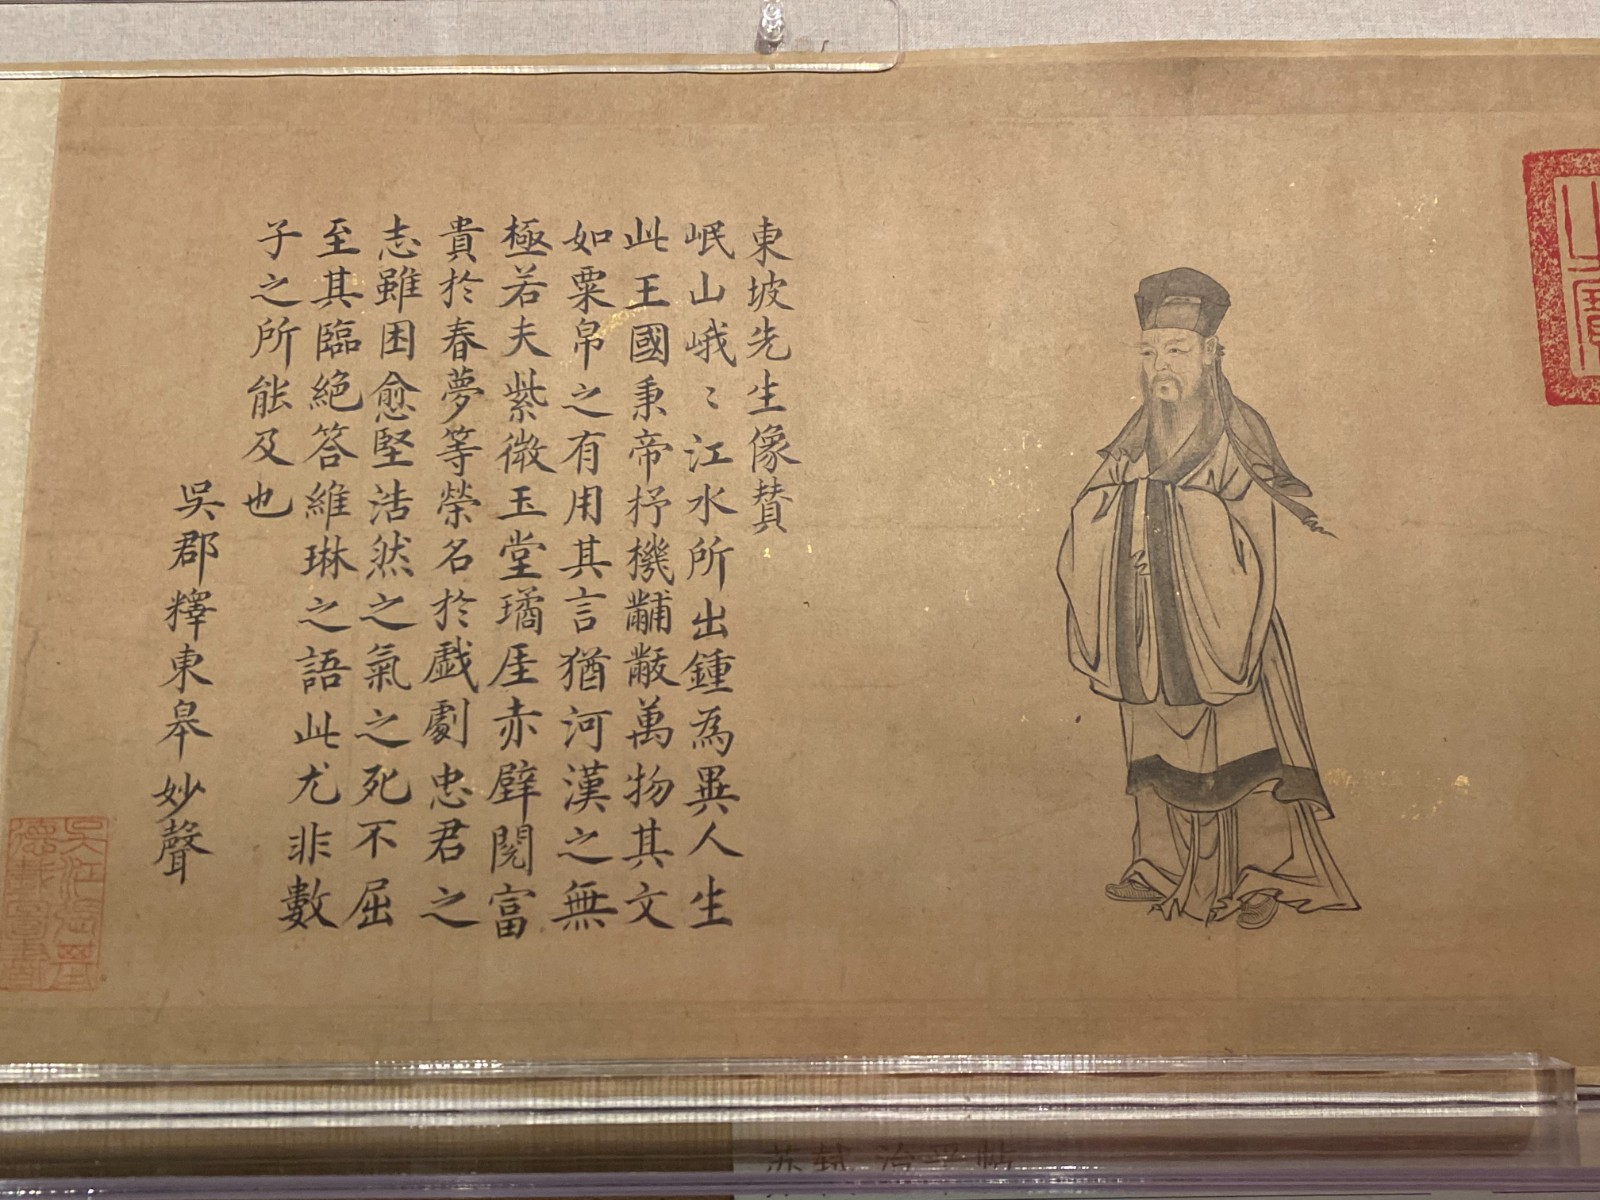 東坡先生像賛
岷山峨〻江水所出鍾為異人生
此王國秉帝杼機黼黻萬物其文
如粟帛之有用其言猶河漢之無
極若夫紫微玉堂璚厓赤壁閱富
貴於春夢等榮名於戲劇忠君之
志雖困愈堅浩然之氣之死不屈
至其臨絕答維琳之語此尤非數
子之所能及也
吳郡釋東皋妙聲
蘇軾 治平帖